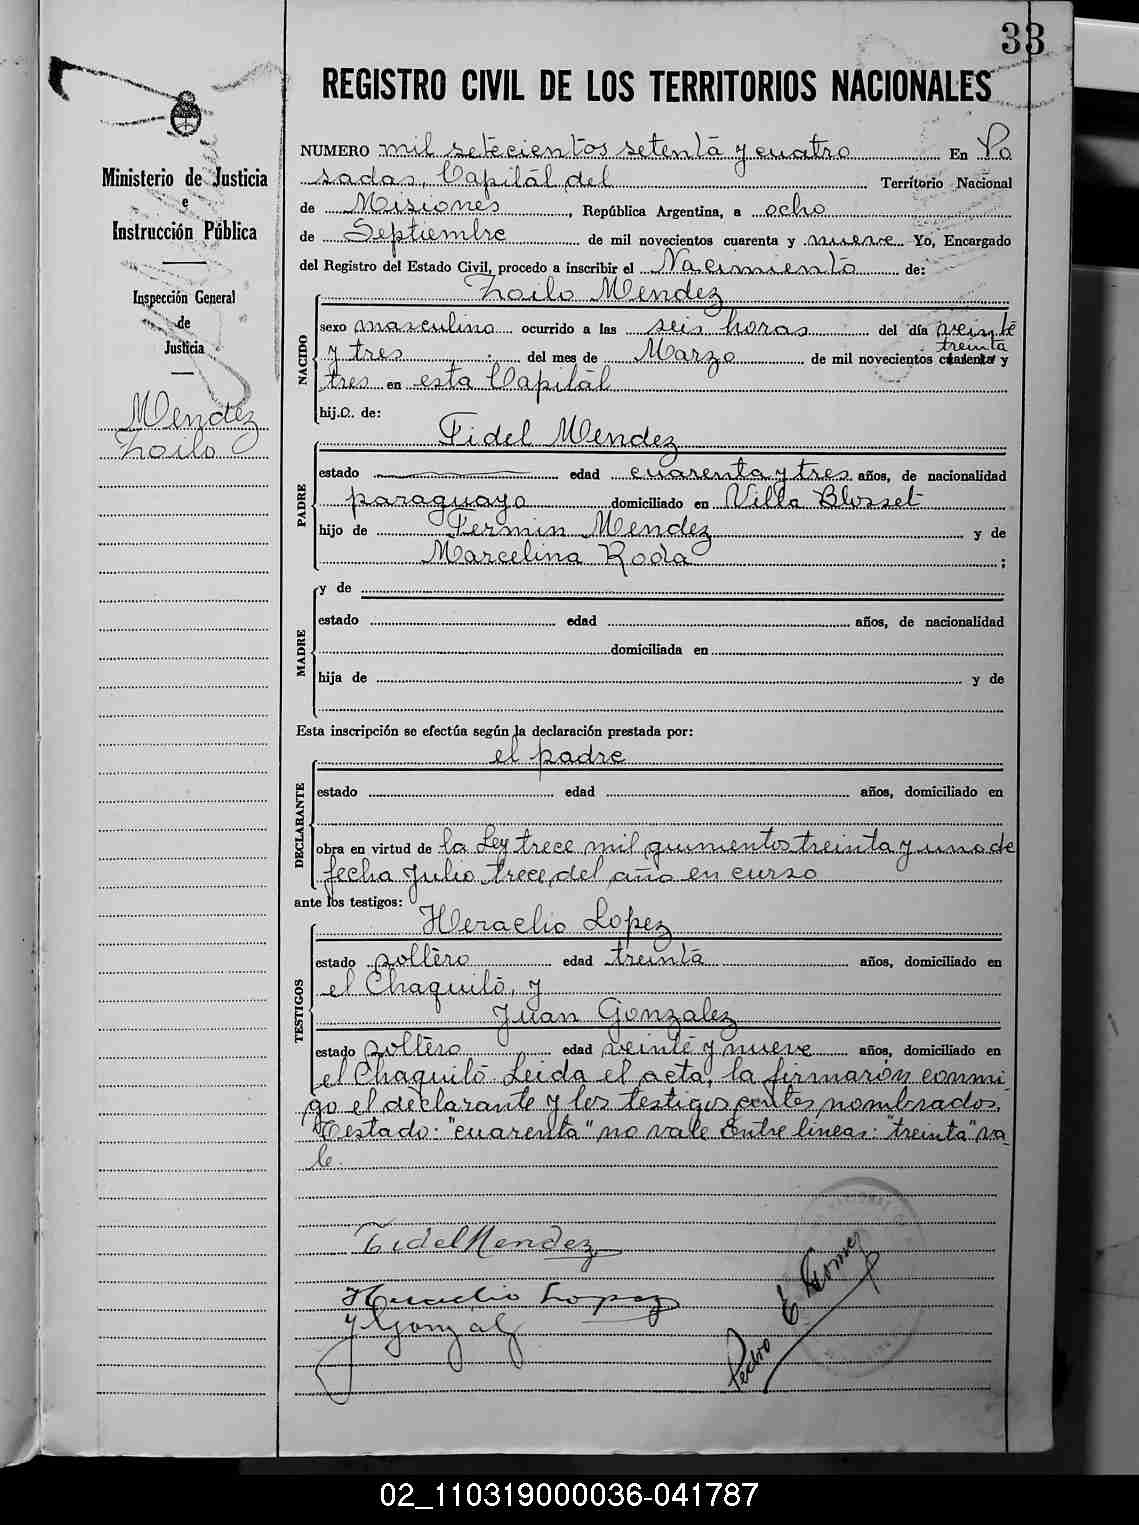 33
REGISTRO CIVIL DE LOS TERRITORIOS NACIONALES
Ministerio de Justicia
e
Instrucción Pública
Inspección General
de
Justicia
Mendez
Zoilo
NUMERO mil setecientos setenta y cuatro En Po
sadas, Capital del Territorio Nacional
de Misiones, República Argentina, a ocho
de Septiembre de mil novecientos cuarenta y nueve Yo, Encargado
del Registro del Estado Civil, procedo a inscribir el Nacimiento de:
Zoilo Mendez
NACIDO
sexo masculino ocurrido a las seis horas del día veinte
treinta
y tres del mes de Marzo de mil novecientos cuarenta y
tres en esta Capital
hij.o. de:
Fidel Mendez
PADRE
estado edad cuarenta y tres años, de nacionalidad
paraguayo domiciliado en Villa Blosset
hijo de Fermin Mendez y de
Marcelina Roda ;
MADRE
y de
estado edad años, de nacionalidad
domiciliada en
hija de y de
Esta inscripción se efectúa según la declaración prestada por:
el padre
DECLARANTE
estado edad años, domiciliado en
obra en virtud de la Ley trece mil quinientos treinta y uno de
fecha Julio trece, del año en curso
ante los testigos:
Heraclio Lopez
TESTIGOS
estado soltero edad treinta años, domiciliado en
el Chaquito, y
Juan Gonzalez
estado soltero edad veinte y nueve años, domiciliado en
el Chaquito Leida el acta, la firmarón conmi-
go el declarante y los testigos nombrados.
Testado: "cuarenta" no vale Entre lineas: "treinta" va-
le.
Fidel Mendez
Heraclio Lopez
J Gonzalez
Pedro E Gomez
02_110319000036-041787